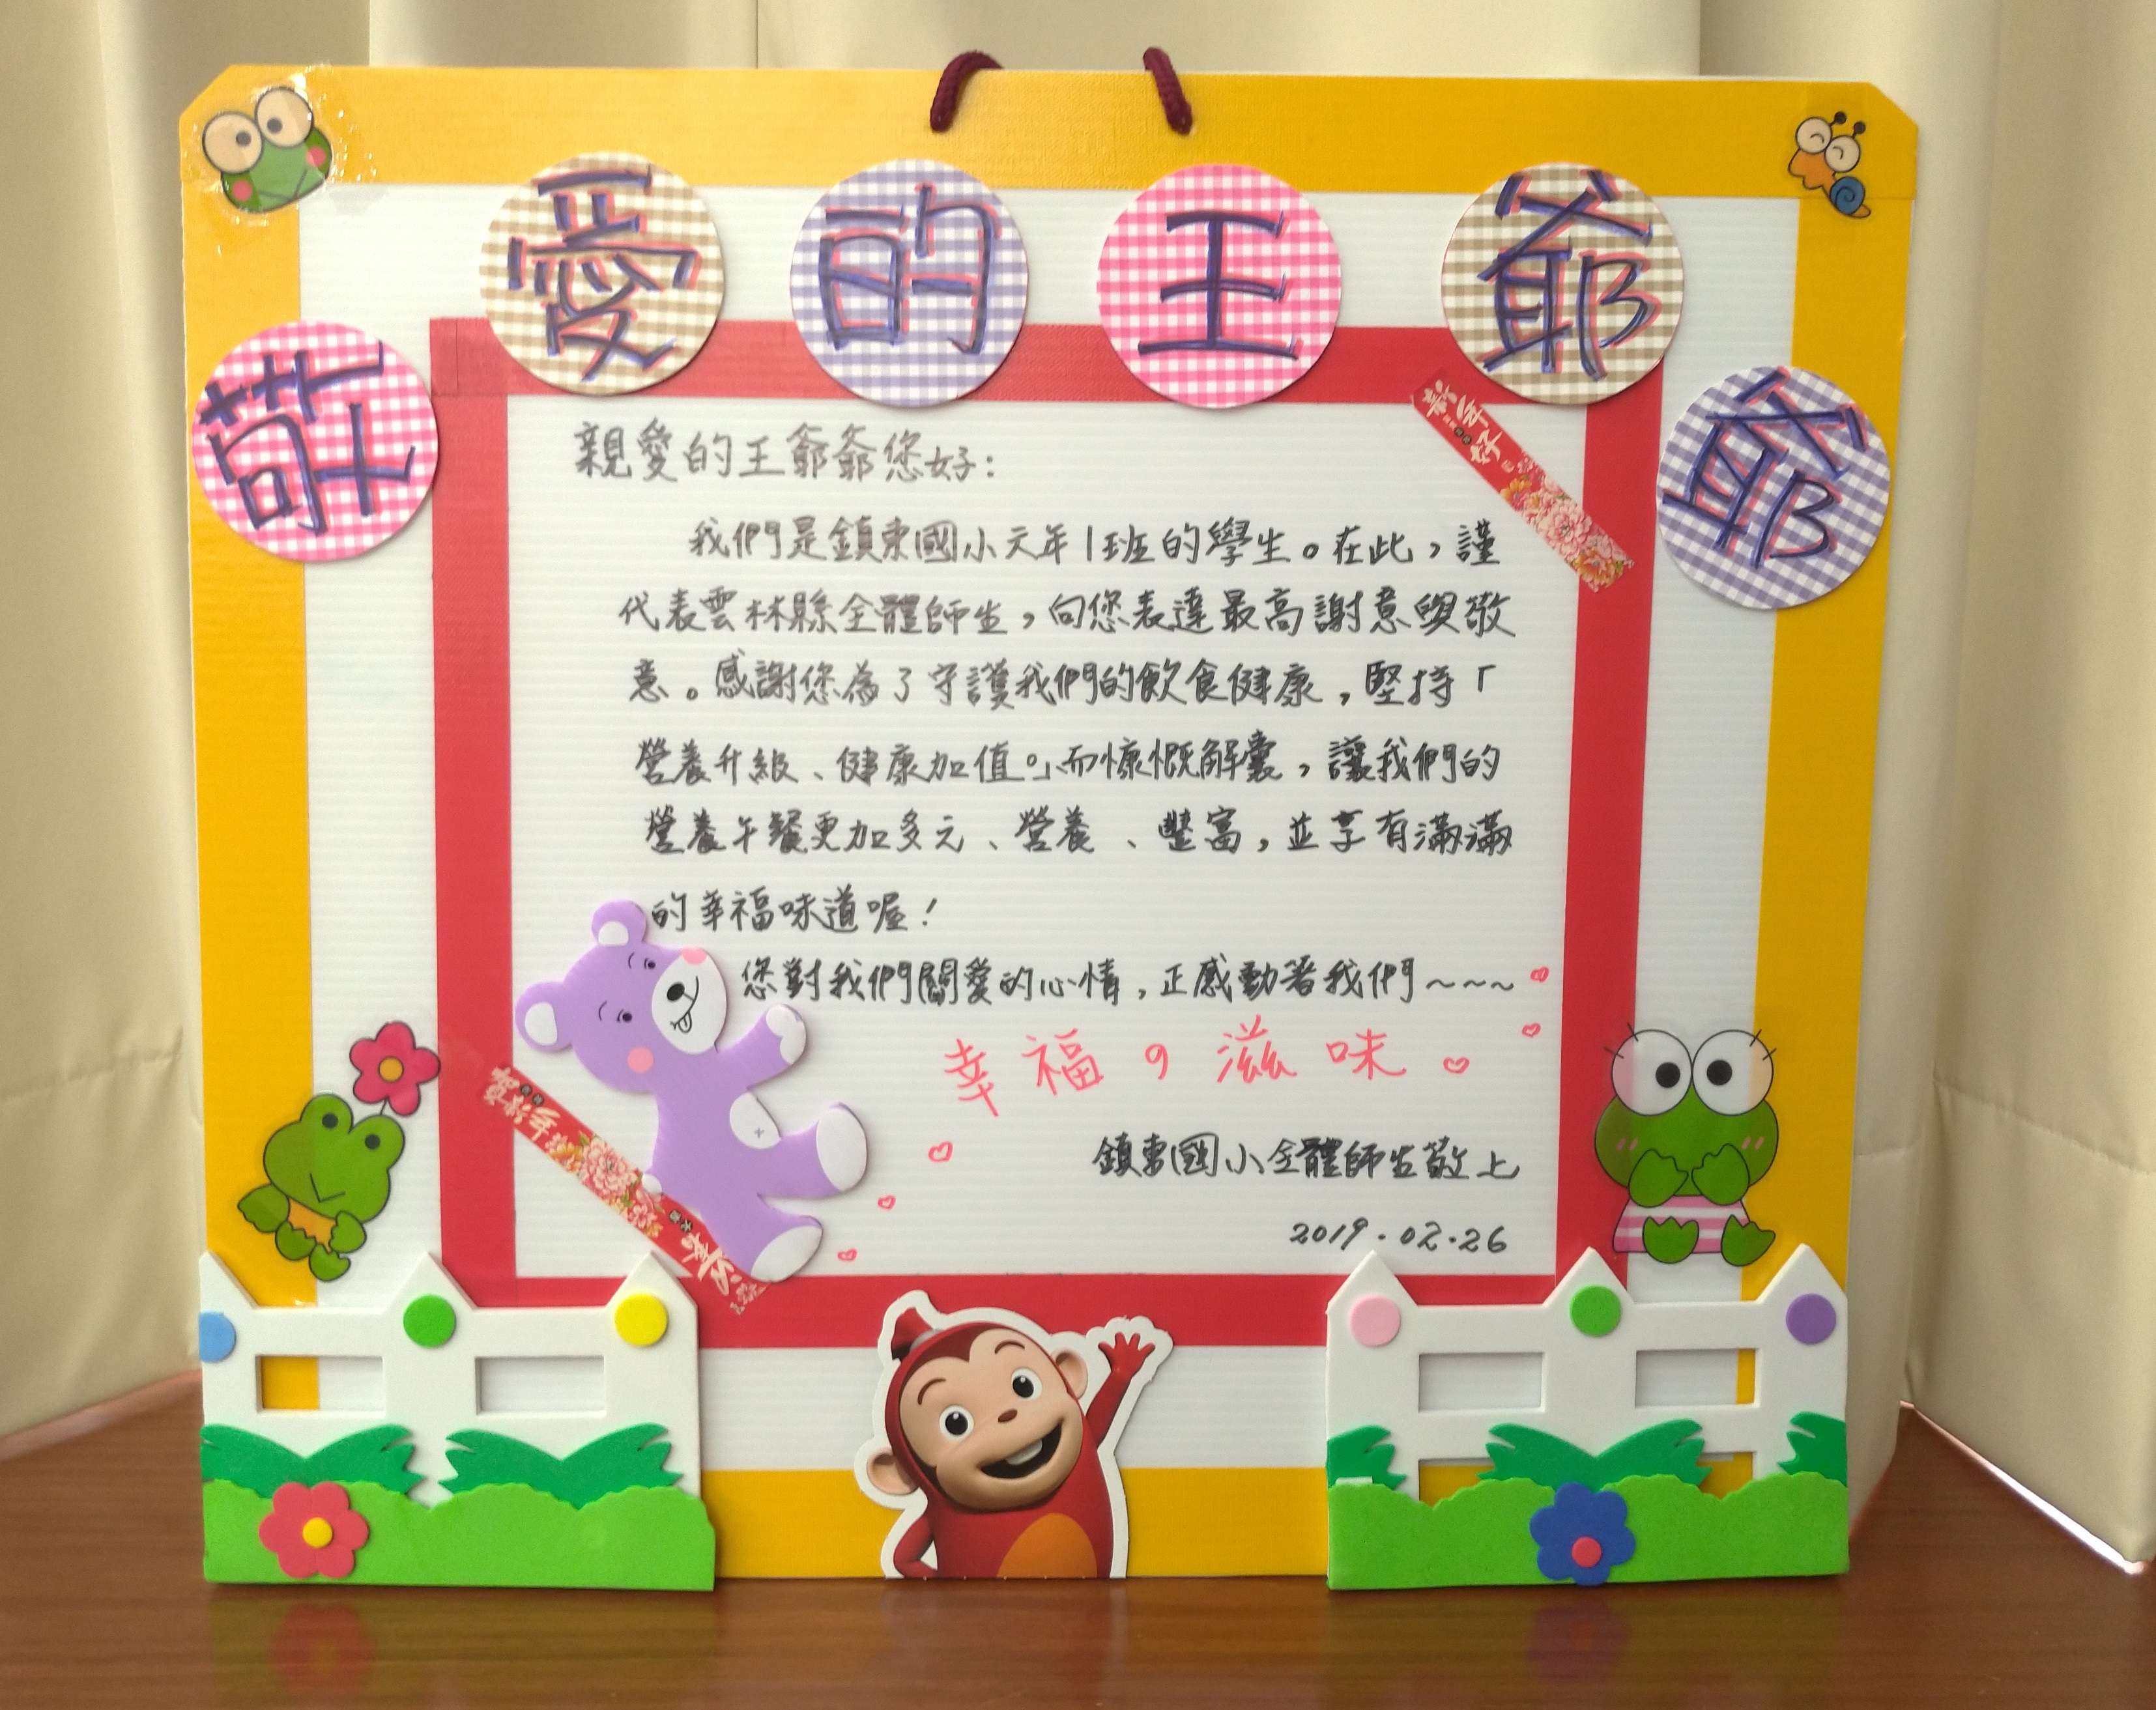 敬愛的王爺爺
新年好
親愛的王爺爺您好：
我們是鎮東國小六年1班的學生。在此，謹
代表雲林縣全體師生，向您表達最高謝意與敬
意。感謝您為了守護我們的飲食健康，堅持「
營養升級、健康加值。」而慷慨解囊，讓我們的
營養午餐更加多元、營養、豐富，並享有滿滿
的幸福味道喔！
您對我們關愛的心情，正感動著我們~~~
幸福の滋味
賀新年
鎮東國小全體師生敬上
2019.02.26